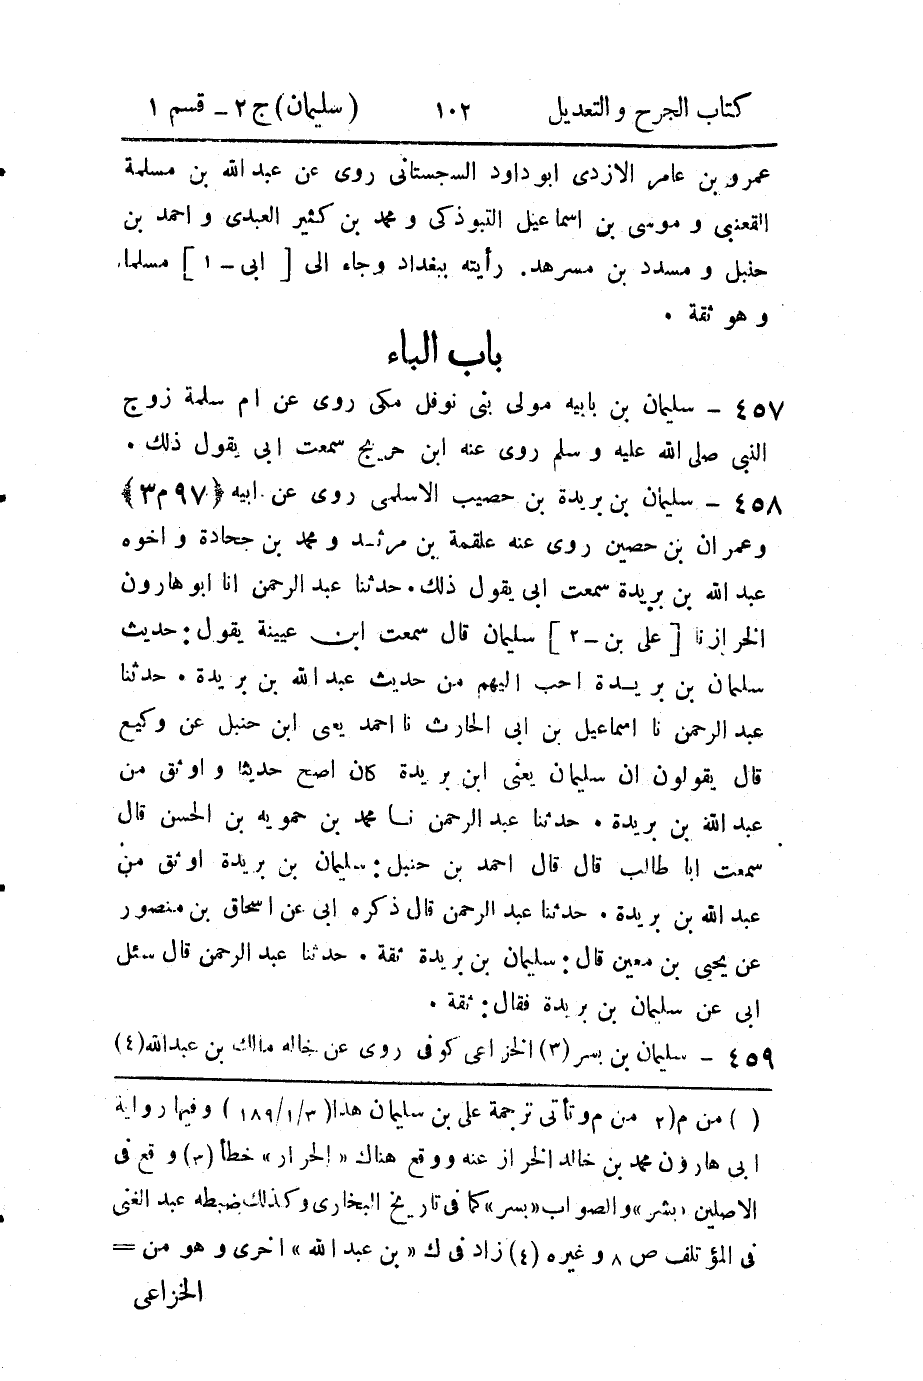 كتاب الجرح والتعديل ١٠٢ (سليمان) ج ٢ - قسم ١
عمرو بن عامر الازدى ابو داود السجستانى روى عن عبد الله بن مسلمة
القعنبى و موسى بن اسماعيل التبوذكى و محمد بن كثير العبدى و احمد بن
حنبل و مسدد بن مسرهد. رأيته ببغداد وجاء الى [ ابى - ١ ] مسلما.
و هو ثقة .
باب الباء
٤٥٧ - سليمان بن بابيه مولى بنى نوفل مكى روى عن ام سلمة زوج
النبى صلى الله عليه و سلم روى عنه ابن جريج سمعت ابى يقول ذلك .
٤٥٨ - سليمان بن بريدة بن حصيب الاسلمى روى عن ابيه ﴿٩٧ م ٣﴾
وعمران بن حصين روى عنه علقمة بن مرثد و محمد بن جحادة و اخوه
عبد الله بن بريدة سمعت ابى يقول ذلك . حدثنا عبد الرحمن انا ابو هارون
الخراز نا [ على بن - ٢ ] سليمان قال سمعت ابن عيينة يقول : حديث
سليمان بن بريدة احب اليهم من حديث عبد الله بن بريدة . حدثنا
عبد الرحمن نا اسماعيل بن ابى الحارث نا احمد يعنى ابن حنبل عن وكيع
قال يقولون ان سليمان يعنى ابن بريدة كان اصح حديثا و اوثق من
عبد الله بن بريدة . حدثنا عبد الرحمن نا محمد بن حمويه بن الحسن قال
سمعت ابا طالب قال قال احمد بن حنبل : سليمان بن بريدة اوثق من
عبد الله بن بريدة . حدثنا عبد الرحمن قال ذكره ابى عن اسحاق بن منصور
عن يحيى بن معين قال : سليمان بن بريدة ثقة . حدثنا عبد الرحمن قال سئل
ابى عن سليمان بن بريدة فقال : ثقة .
٤٥٩ - سليمان بن بسر (٣) الخزاعى كوفى روى عن خاله مالك بن عبدالله (٤)
( ) من م (٢ من م وتأتى ترجمة على بن سليمان هذا (٣/١/١٨٩ ) وفيها رواية
ابى هارون محمد بن خالد الخراز عنه ووقع هناك « الحرار » خطأ (٣) وقع فى
الاصلين «بشر» والصواب «بسر» كما فى تاريخ البخارى وكذلك ضبطه عبد الغنى
فى المؤتلف ص ٨ وغيره (٤) زاد فى ك « بن عبد الله » اخرى و هو من =
الخزاعى